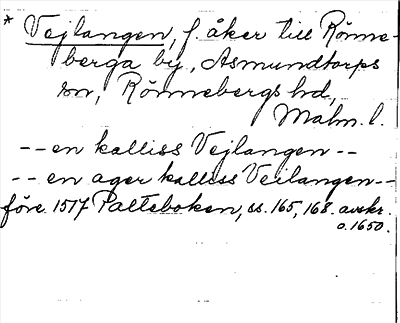 * Vejlangen, f. åker till Rönne-
berga by, Asmundtorps
sn, Rönnebergs hd,
Malm. l.
-- en kalliss Vejlangen --
-- en ager kalliss Veilangen --
före 1517 Palteboken, ss. 165, 168. avskr.
o. 1650.